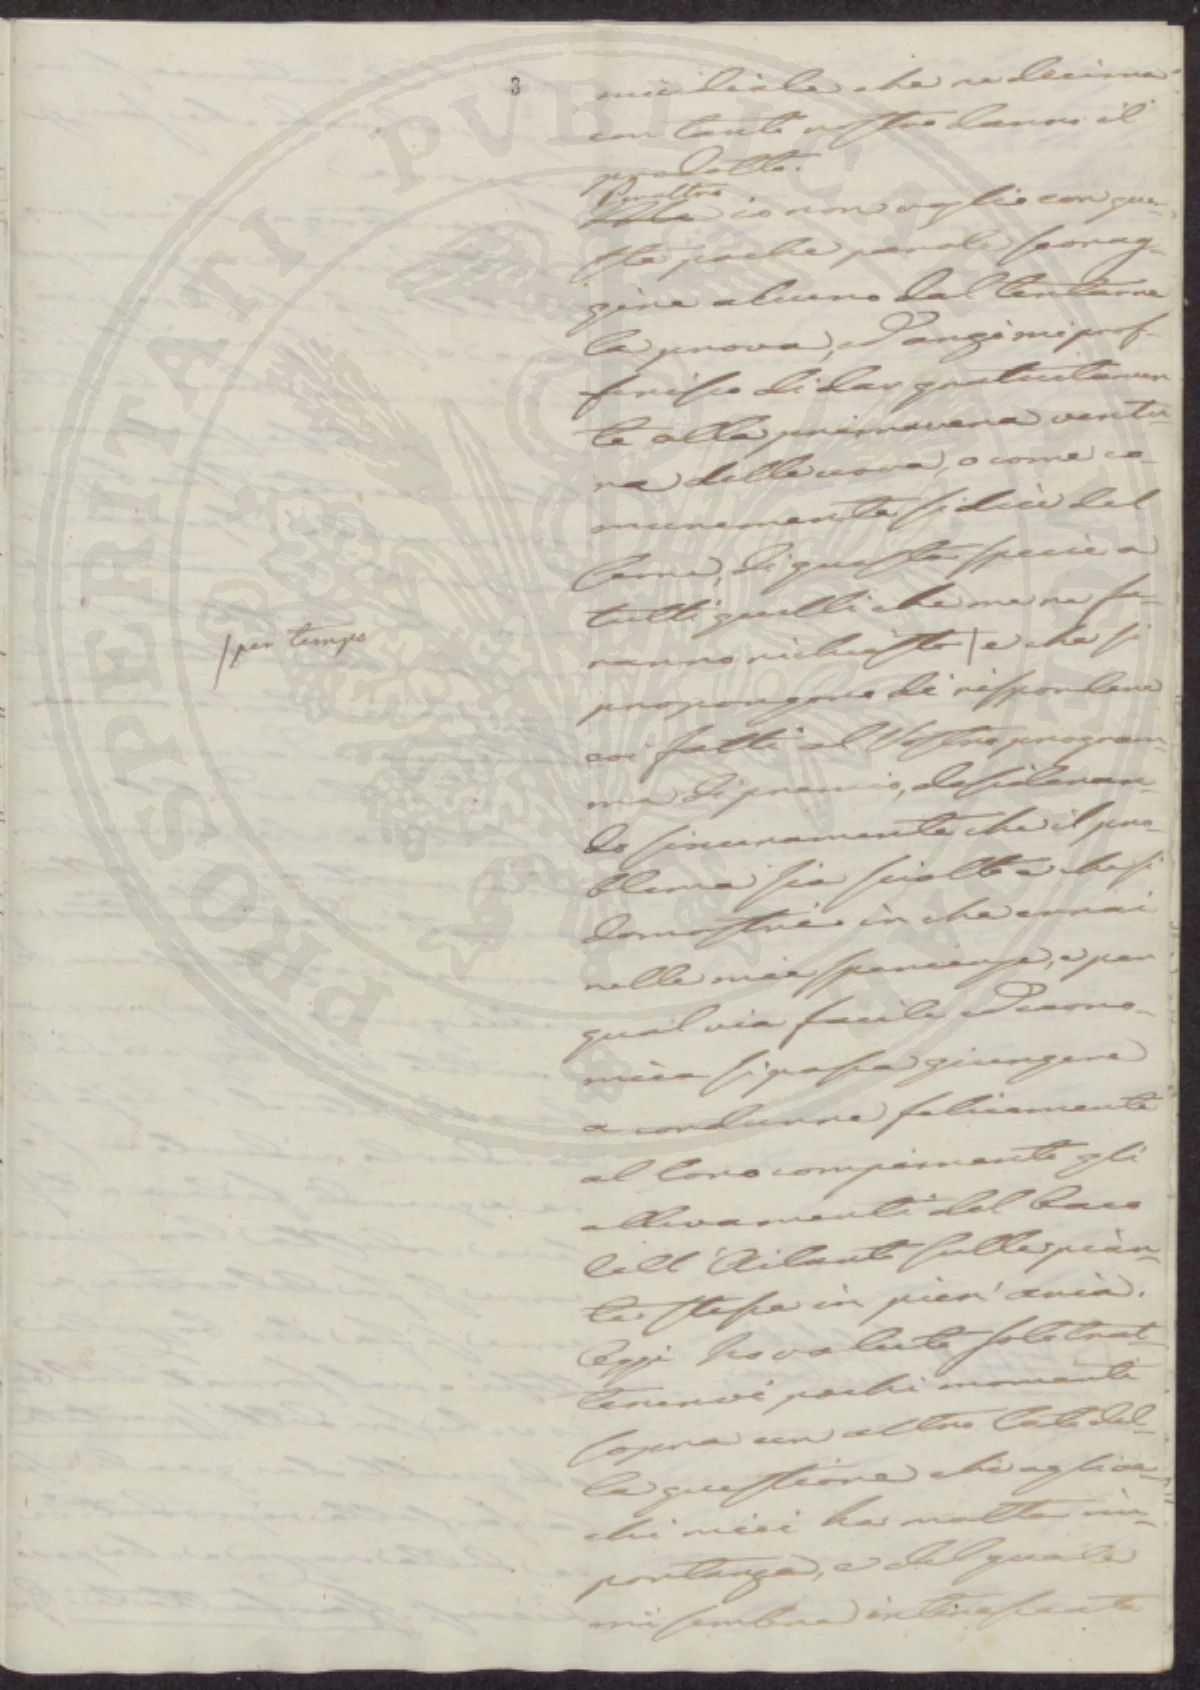 3
micidiale che ne decima
con tanto vostro danno il
prodotto.
Peraltro
Ma io non voglio con que-
ste poche parole scorag-
gire alcuno dal tentarne
la prova, ed anzi mi prof-
ferisco di dar gratuitamen
te alla primavera ventu-
ra delle uova, o come co-
munemente si dice del
seme, di questa specie a
tutti quelli che me ne fa-
ranno richiesta | e che si
|per tempo
propongono di rispondere
coi fatti al Vostro program-
ma di premio, desideran-
do sinceramente che il pro-
blema sia sciolto e che si
dimostri in che errai
nelle mie sperienze, e per
qual via facile ed econo-
mica si possa giungere
a condurre felicemente
al loro compimento gli
allevamenti del baco
dell'Ailanto sulle pian-
te stesse in pien'aria.
Oggi ho voluto solo trat-
tenervi pochi momenti
sopra un altro lato del-
la questione che agli oc-
chi miei ha molta im-
portanza, e del quale
mi sembra interessante
PROSPERITATI PVBLICAE AVGENDAE